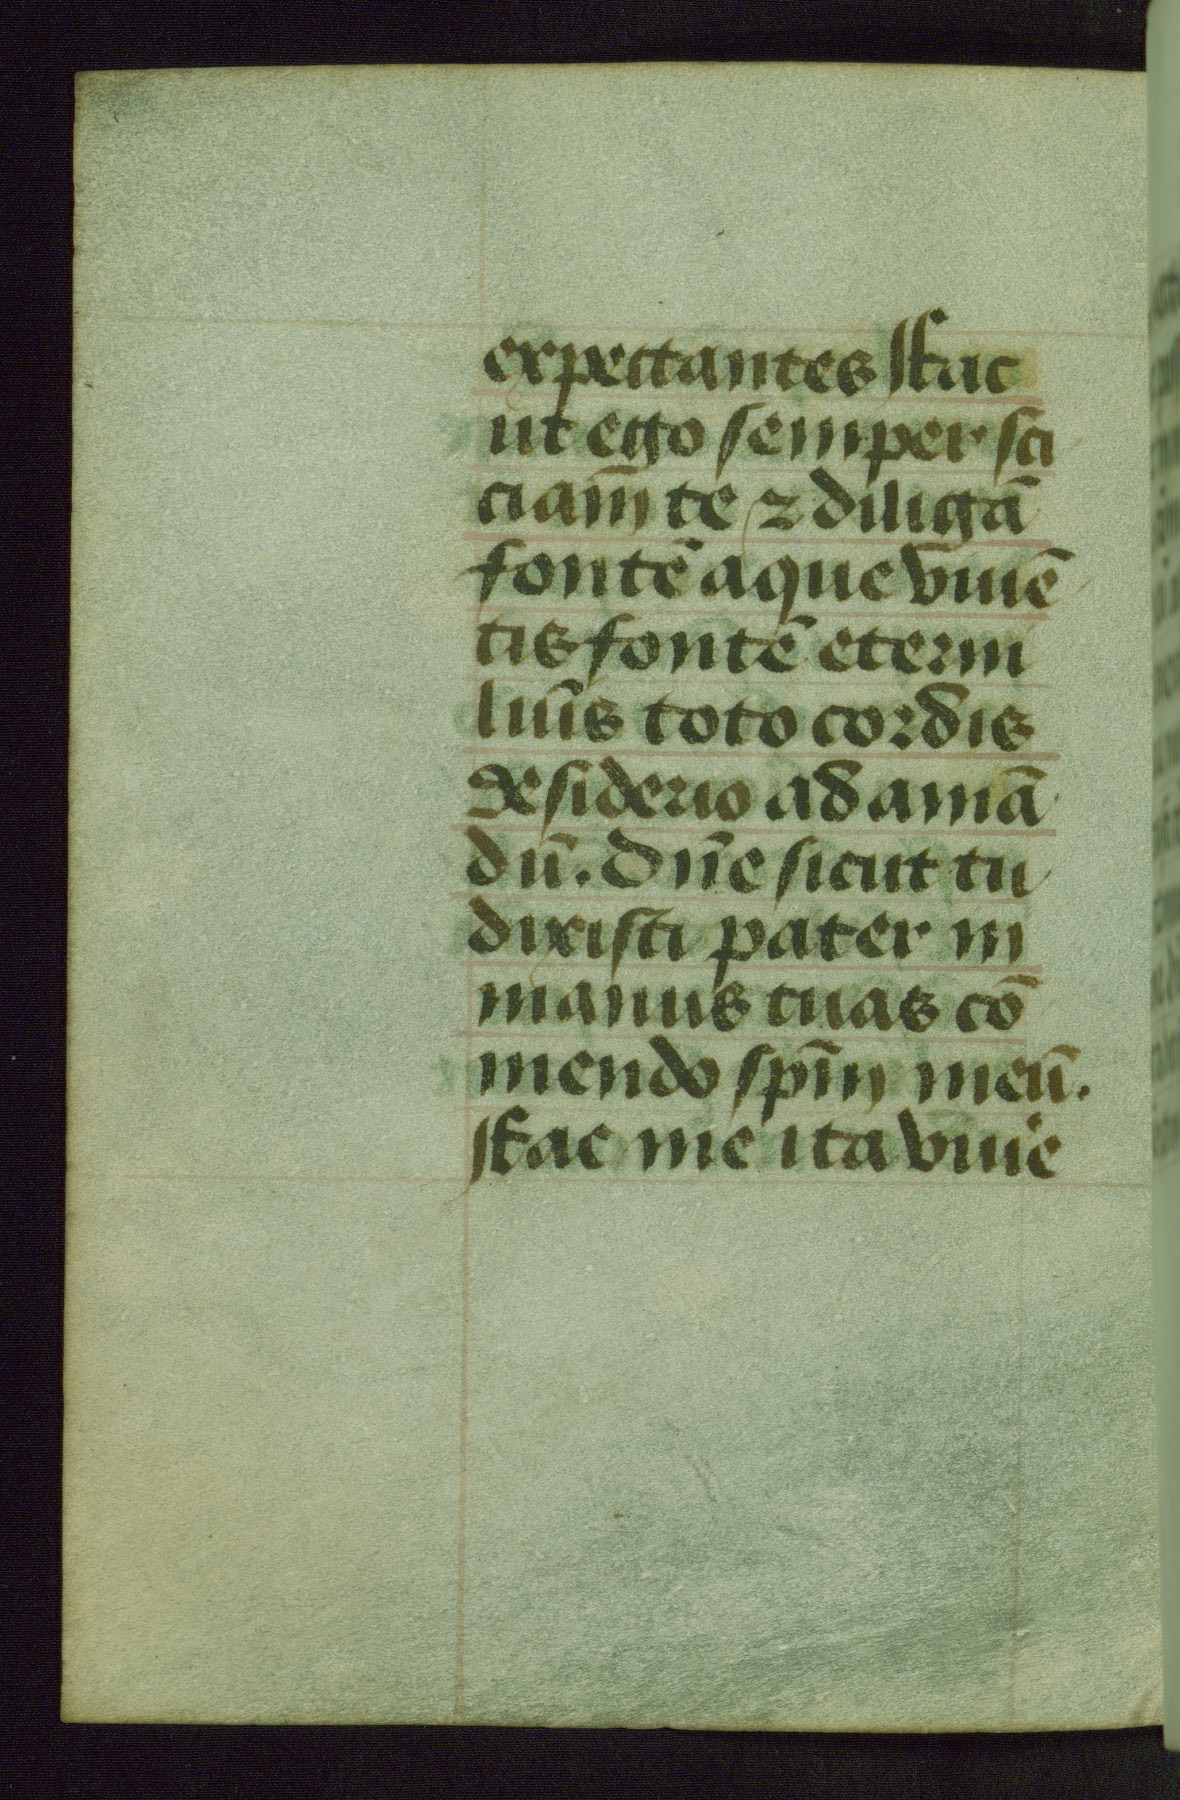 expectantes Fac
ut ego semper sci
ciam̄ te ⁊ diligā
fontē aque viuē
tis fontē eterni
lum̄s toto cordis
desiderio ad amā
dū. Dn̄e sicut tu
dixisti pater in
manus tuas cō
mendo sp̄m meū.
Fac me ita viue